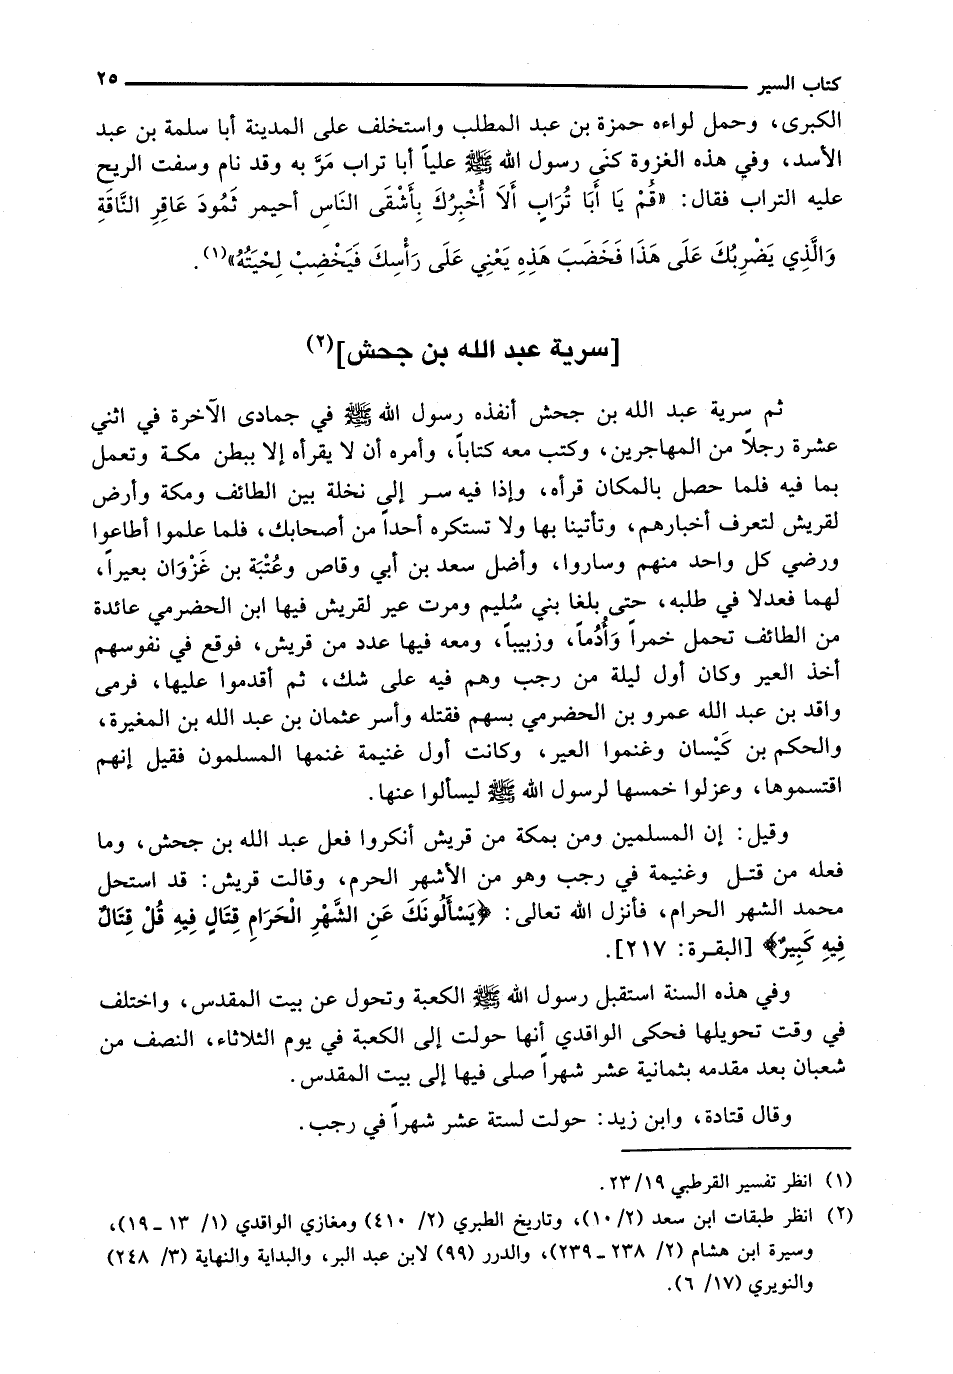 كتاب السير ٢٥
الكبرى، وحمل لواءه حمزة بن عبد المطلب واستخلف على المدينة أبا سلمة بن عبد
الأسد، وفي هذه الغزوة كنّى رسول الله ﷺ علياً أبا تراب مَرَّ به وقد نام وسفت الريح
عليه التراب فقال: «قُمْ يَا أَبَا تُرَابٍ أَلَا أُخْبِرُكَ بِأَشْقَى النَاسِ أحيمر ثَمُودَ عَاقِرِ النَّاقَةِ
وَالَّذِي يَضْرِبُكَ عَلَى هَذَا فَخَضَبَ هَذِهِ يَعْنِي عَلَى رَأْسِكَ فَيَخْضِبْ لِحْيَتُهُ»(١).
[سرية عبد الله بن جحش](٢)
ثم سرية عبد الله بن جحش أنفذه رسول الله ﷺ في جمادى الآخرة في اثني
عشرة رجلاً من المهاجرين، وكتب معه كتاباً، وأمره أن لا يقرأه إلا ببطن مكة وتعمل
بما فيه فلما حصل بالمكان قرأه، وإذا فيه سر إلى نخلة بين الطائف ومكة وأرض
لقريش لتعرف أخبارهم، وتأتينا بها ولا تستكره أحداً من أصحابك، فلما علموا أطاعوا
ورضي كل واحد منهم وساروا، وأضل سعد بن أبي وقاص وعُتْبَة بن غَزْوَان بعيراً،
لهما فعدلا في طلبه، حتى بلغا بني سُليم ومرت عير لقريش فيها ابن الحضرمي عائدة
من الطائف تحمل خمراً وَأُدُماً، وزبيباً، ومعه فيها عدد من قريش، فوقع في نفوسهم
أخذ العير وكان أول ليلة من رجب وهم فيه على شك، ثم أقدموا عليها، فرمى
واقد بن عبد الله عمرو بن الحضرمي بسهم فقتله وأسر عثمان بن عبد الله بن المغيرة،
والحكم بن كَيْسان وغنموا العير، وكانت أول غنيمة غنمها المسلمون فقيل إنهم
اقتسموها، وعزلوا خمسها لرسول الله ﷺ ليسألوا عنها.
وقيل: إن المسلمين ومن بمكة من قريش أنكروا فعل عبد الله بن جحش، وما
فعله من قتل وغنيمة في رجب وهو من الأشهر الحرم، وقالت قريش: قد استحل
محمد الشهر الحرام، فأنزل الله تعالى: ﴿يَسْأَلُونَكَ عَنِ الشَّهْرِ الْحَرَامِ قِتَالٍ فِيهِ قُلْ قِتَالٌ
فِيهِ كَبِيرٌ﴾ [البقرة: ٢١٧].
وفي هذه السنة استقبل رسول الله ﷺ الكعبة وتحول عن بيت المقدس، واختلف
في وقت تحويلها فحكى الواقدي أنها حولت إلى الكعبة في يوم الثلاثاء، النصف من
شعبان بعد مقدمه بثمانية عشر شهراً صلى فيها إلى بيت المقدس.
وقال قتادة، وابن زيد: حولت لستة عشر شهراً في رجب.
(١) انظر تفسير القرطبي ٢٣/١٩.
(٢) انظر طبقات ابن سعد (١٠/٢)، وتاريخ الطبري (٢/ ٤١٠) ومغازي الواقدي (١/ ١٣ ـ ١٩)،
وسيرة ابن هشام (٢/ ٢٣٨ ـ ٢٣٩)، والدرر (٩٩) لابن عبد البر، والبداية والنهاية (٣/ ٢٤٨)
والنويري (١٧/ ٦).